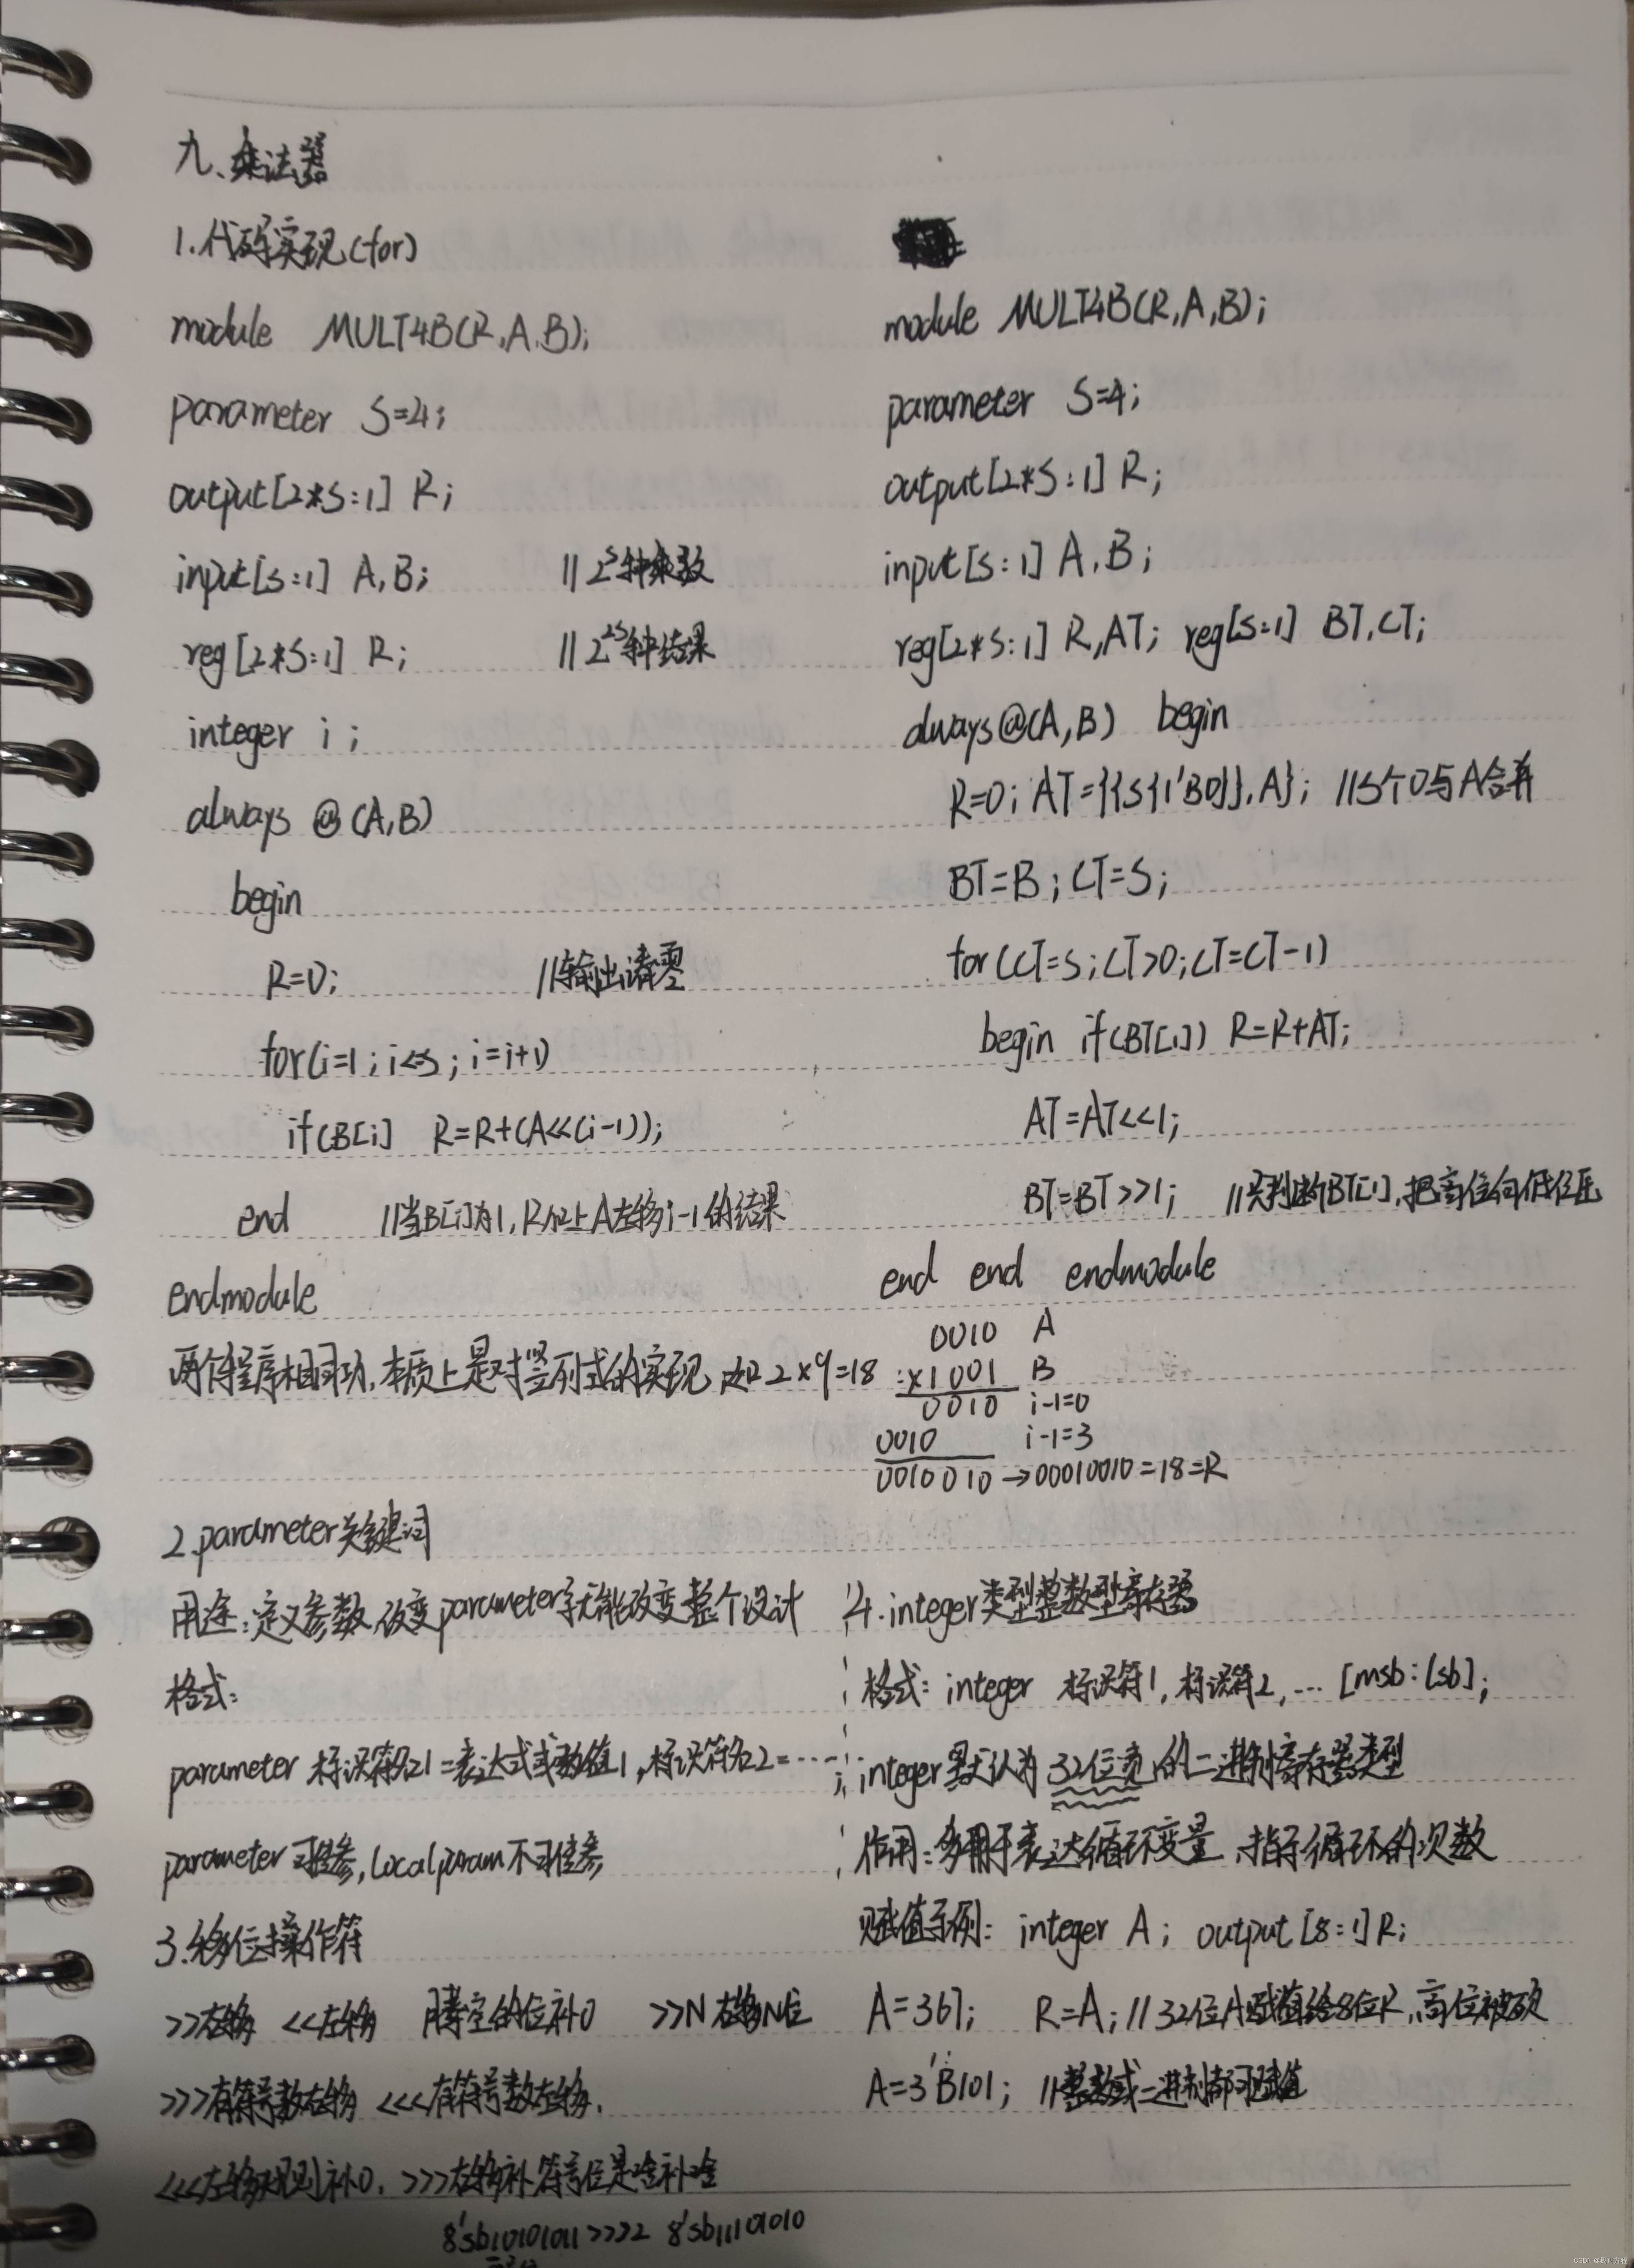 九、乘法器
1.代码实现(for)
module MULT4B(R,A,B);
parameter S=4;
output[2*S:1] R;
input[S:1] A,B; //2^S种乘数
reg[2*S:1] R; //2^2S种结果
integer i;
always @(A,B)
begin
R=0; //输出清零
for(i=1;i<=S;i=i+1)
if(B[i] R=R+(A<<(i-1));
end //当B[i]为1,R加上A左移i-1的结果
endmodule
module MULT4B(R,A,B);
parameter S=4;
output[2*S:1] R;
input[S:1] A,B;
reg[2*S:1] R,AT; reg[S:1] BT,CT;
always@(A,B) begin
R=0; AT={{S{1'B0}},A}; //S个0与A合并
BT=B; CT=S;
for(CT=S;CT>0;CT=CT-1)
begin if(BT[1]) R=R+AT;
AT=AT<<1;
BT=BT>>1; //只判断BT[1],把高位向低位压
end end endmodule
两个程序相同功,本质上是对竖列式的实现,如2×9=18
0010 A
×1001 B
0010 i-1=0
0010 i-1=3
0010010→00010010=18=R
2.parameter关键词
用途:定义参数,改变parameter就能改变整个设计
格式:
parameter 标识符名1=表达式或数值1,标识符名2=……;
parameter可传参,localparam不可传参
3.移位操作符
>>右移 <<左移 腾空的位补0 >>N右移N位
>>>有符号数右移 <<<有符号数左移.
<<<左移规则补0, >>>右移补符号位是啥补啥
8'sb10101011>>>2 8'sb11101010
4.integer类型整数型寄存器
格式: integer 标识符1,标识符2,…[msb:lsb];
integer默认为32位宽的二进制寄存器类型
作用:多用于表达循环变量,指示循环的次数
赋值示例: integer A; output[8:1]R;
A=367; R=A;//32位A赋值给8位R,高位被砍
A=3'B101; //整数或二进制都可赋值
CSDN